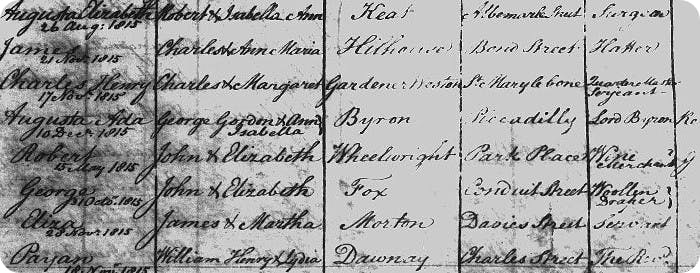 Augusta Elizabeth Robert & Isabella Ann Keat Albemarle Street Surgeon
26 Aug: 1815
James Charles & Ann Maria Hilhouse Bond Street Hatter
21 Nov: 1815
Charles Henry Charles & Margaret Gardener Weston St Marylebone Quarter Master
17 Nov: 1815 Sergeant
Augusta Ada George Gordon & Ann Byron Piccadilly Lord Byron
10 Decr. 1815 Isabella
Robert John & Elizabeth Wheelwright Park Place Wine
15 May 1815 Merchant
George John & Elizabeth Fox Conduit Street Woollen
1815 Draper
Eliza James & Martha Morton Davies Street Servant
Novr 1815
Payan William Henry & Lydia Dawnay Charles Street The Revd
Nov: 1815